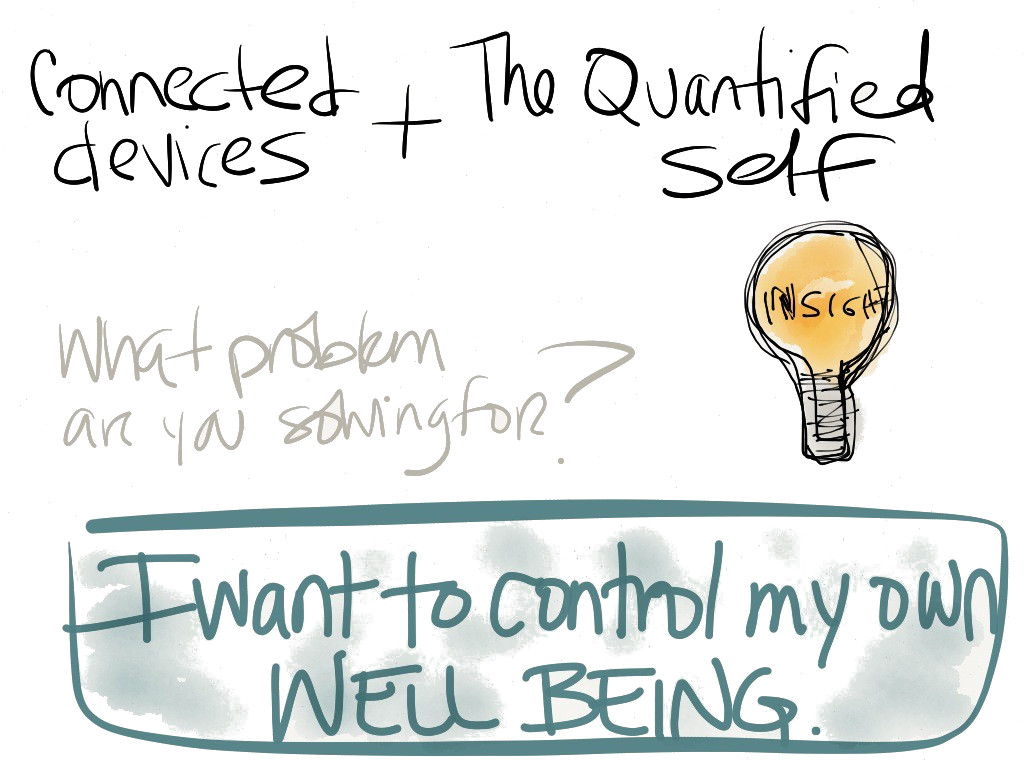 Connected + The Quantified
devices self
INSIGHT
What problem
are you solving for?
I want to control my own
WELL BEING.